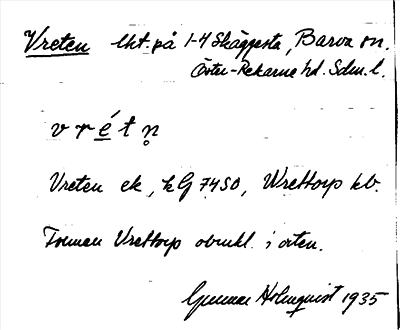 Vreten lht. på 1-4 Skäggesta, Barva sn.
Öster-Rekarne hd. Sdm. l.
v r é t n̥
Vreten ek, kG 7450, Wrettorp kb.
Formen Vrettorp obrukl. i orten.
Gunnar Holmquist 1935